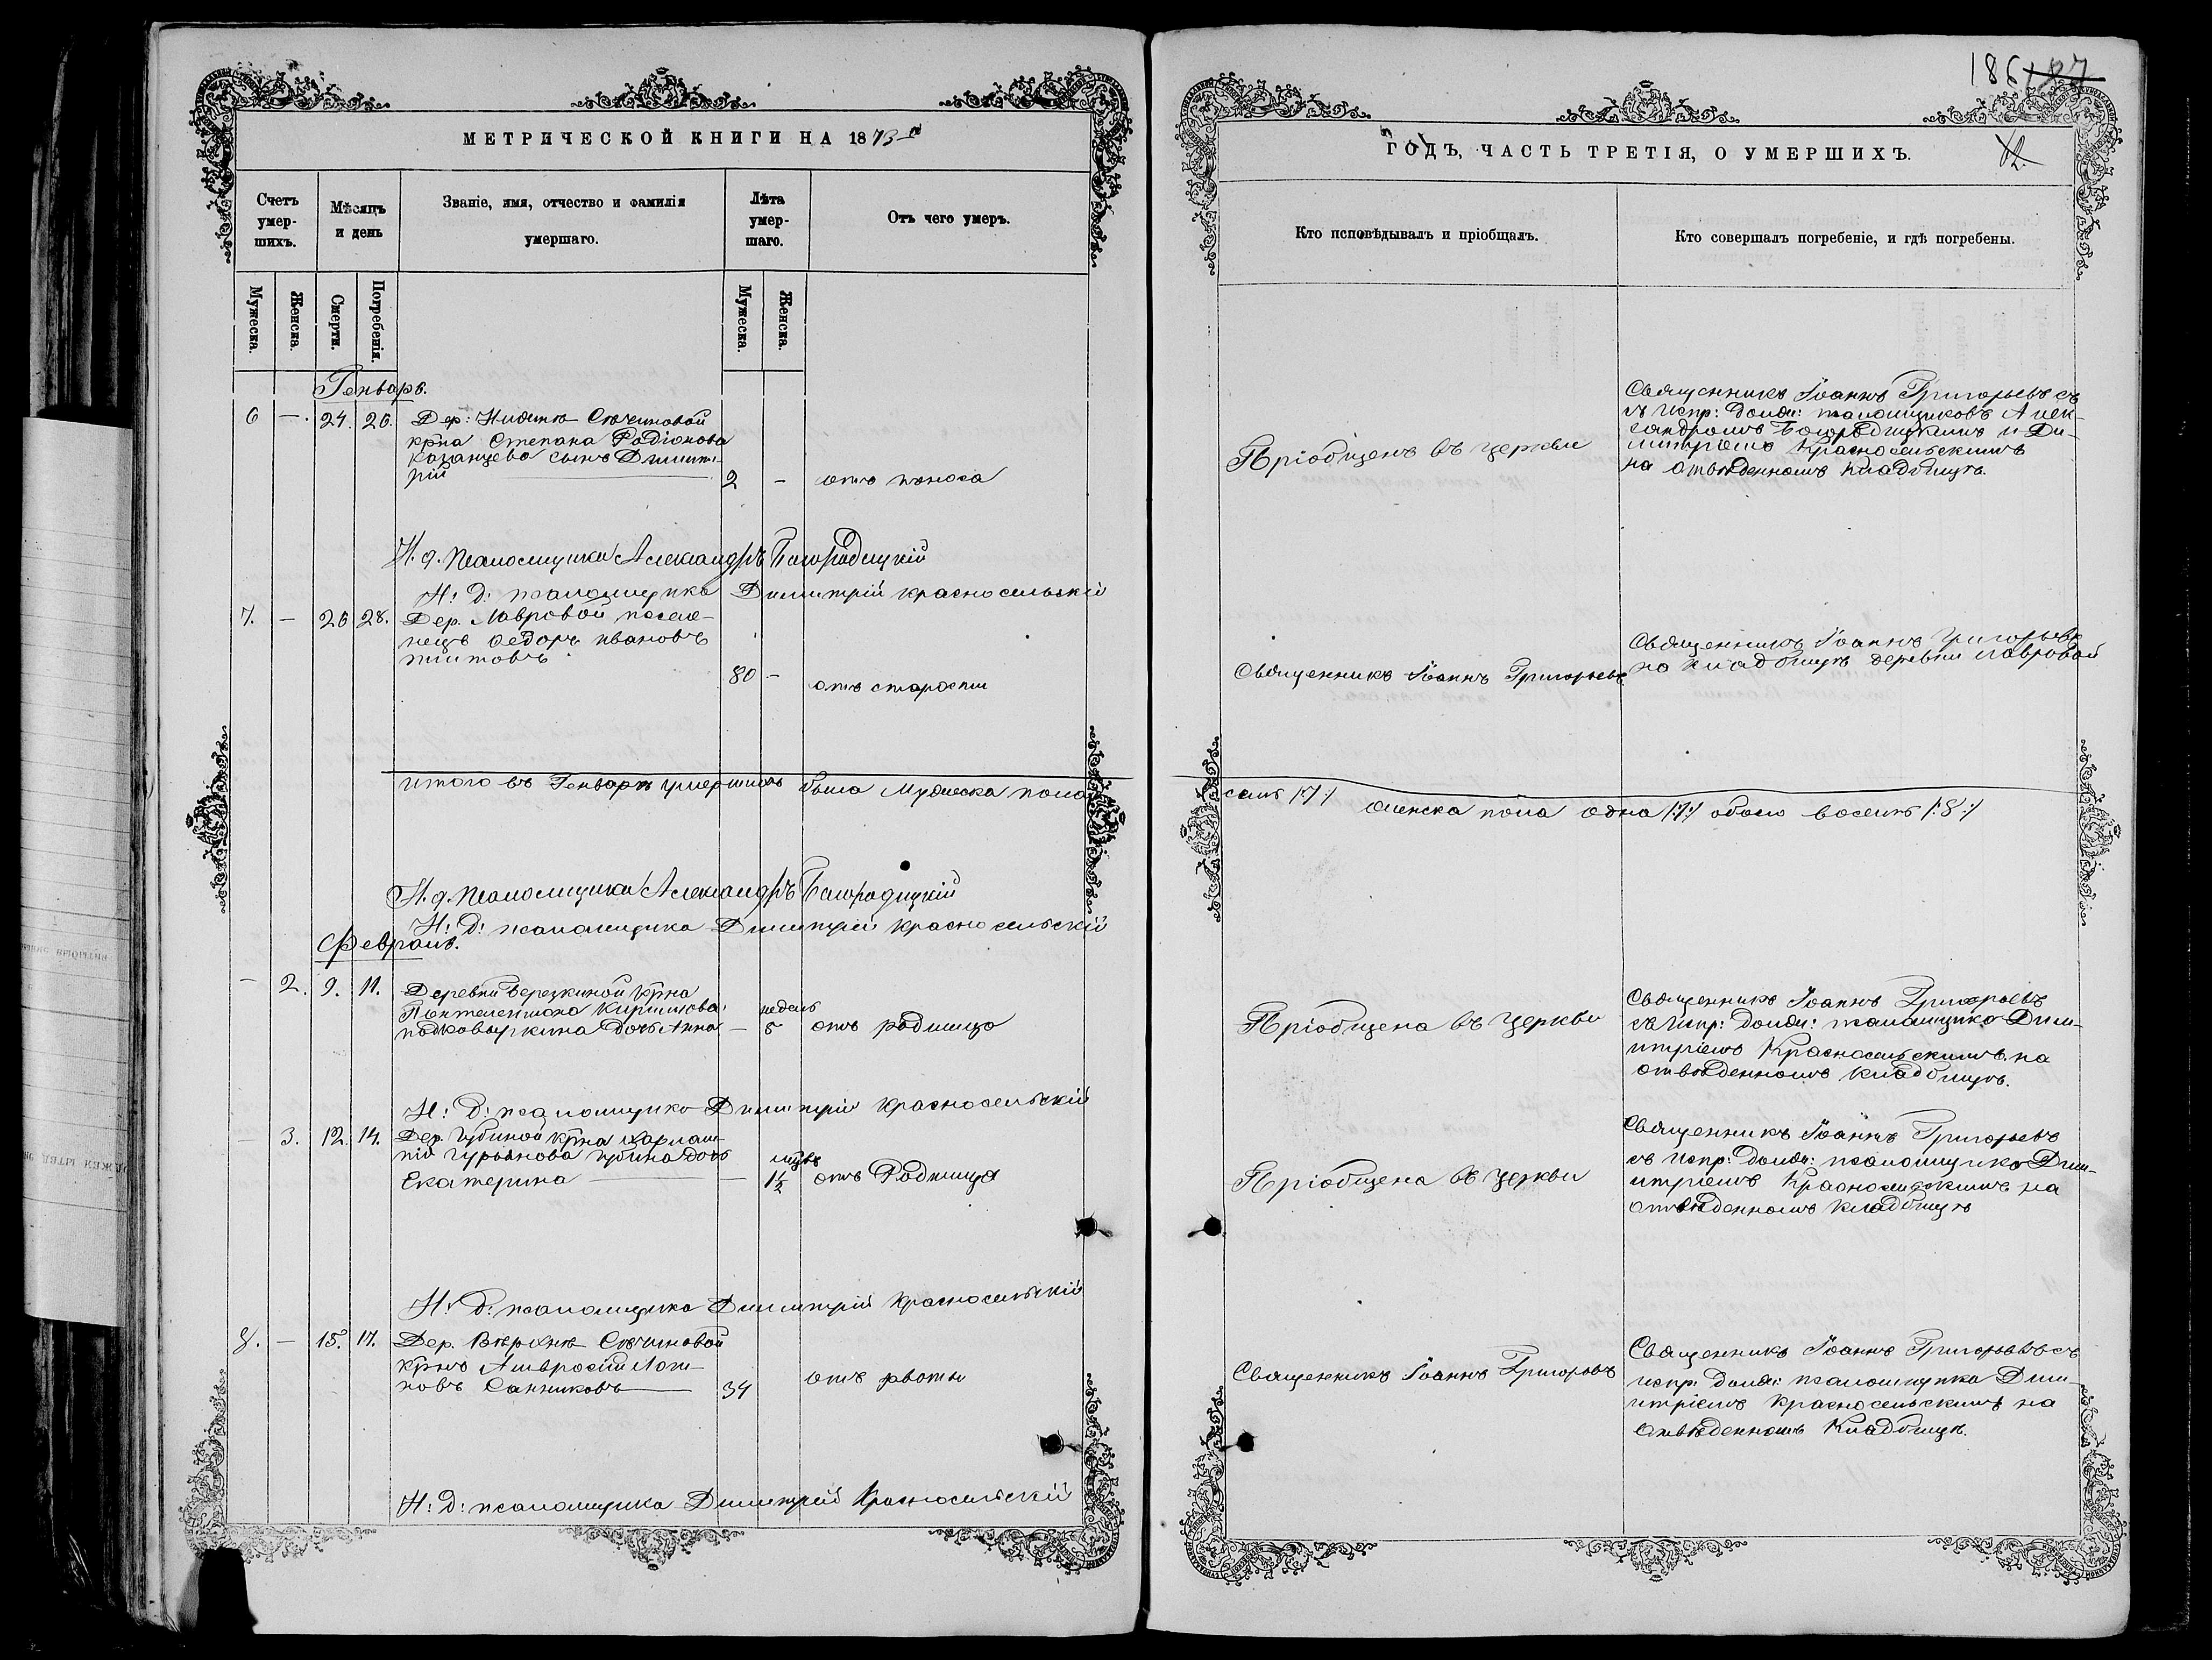 186 187
МЕТРИЧЕСКОЙ КНИГИ НА 1873 й
ГОДЪ, ЧАСТЬ ТРЕТІЯ, О УМЕРШИХЪ.
Счетъ умер-
шихъ.
Мѣсяцъ
и день
Званіе, имя, отчество и фамилія
умершаго.
Лѣта
умер-
шаго.
Отъ чего умеръ.
Кто исповѣдывалъ и пріобщалъ.
Кто совершалъ погребеніе, и гдѣ погребены.
Мужеска.
Женска.
Смерти.
Погребенія.
Мужеска.
Женска.
Генварь.
6 — 24. 26.
Дер: Нижнѣ Сѣчиновой
крна Степана Родіонова
Казанцева сынъ Димит-
рій
2 — отъ поноса
Пріобщенъ въ церкви
Священникъ Іоаннъ Григорьевъ съ
съ испр: должн: псаломщиковъ Алек-
сандромъ Богородицкимъ и Ди-
митріемъ Красносельскимъ
на отвѣденномъ кладбищѣ.
И. д. псаломщика Александръ Богородицкій
И: д: псаломщика Димитрій Красносельскій
7. — 26 28.
Дер. Лавровой поселе-
нецъ Ѳедоръ Ивановъ
Титовъ
80 — отъ старости
Священникъ Іоаннъ Григорьевъ
Священникъ Іоаннъ Григорьевъ
на кладбищѣ деревни Лавровой
Итого въ Генварѣ умершихъ было мужеска пола
семь /7:/ женска пола одна /:1:/ обоего восемь /:8:/
И. д. псаломщика Александръ Богородицкій
И: д: псаломщика Димитрій Красносельскій
Февраль.
— 2. 9. 11.
Деревни Березкиной крна
Пантелеимона Кирилова
Подковыркина дочь Анна —
недель
5 отъ родимца
Пріобщена въ церкви
Священникъ Іоаннъ Григорьевъ
съ испр: должн: псаломщика Дим-
итріемъ Красносельскимъ на
отвѣденномъ кладбищѣ.
И: д: псаломщика Димитрій Красносельскій
— 3. 12. 14.
Дер. Губиной крна Харлам-
пія Гурьянова Губина дочь
Екатерина —
1½ отъ Родимца
Пріобщена въ церкви
Священникъ Іоаннъ Григорьевъ
съ испр: должн: псаломщика Дим-
итріемъ Красносельскимъ на
отвѣденномъ кладбищѣ
И: д: псаломщика Димитрій Красносельскій
8. — 15. 17.
Дер. Вѣрхнѣ Сѣчиновой
крнъ Амвросій Логи-
новъ Санниковъ
34 отъ рвоты
Священникъ Іоаннъ Григорьевъ
Священникъ Іоаннъ Григорьевъ съ
испр: должн: псаломщика Дим-
итріемъ Красносельскимъ на
отвѣденномъ кладбищѣ.
И: д: псаломщика Димитрій Красносельскій